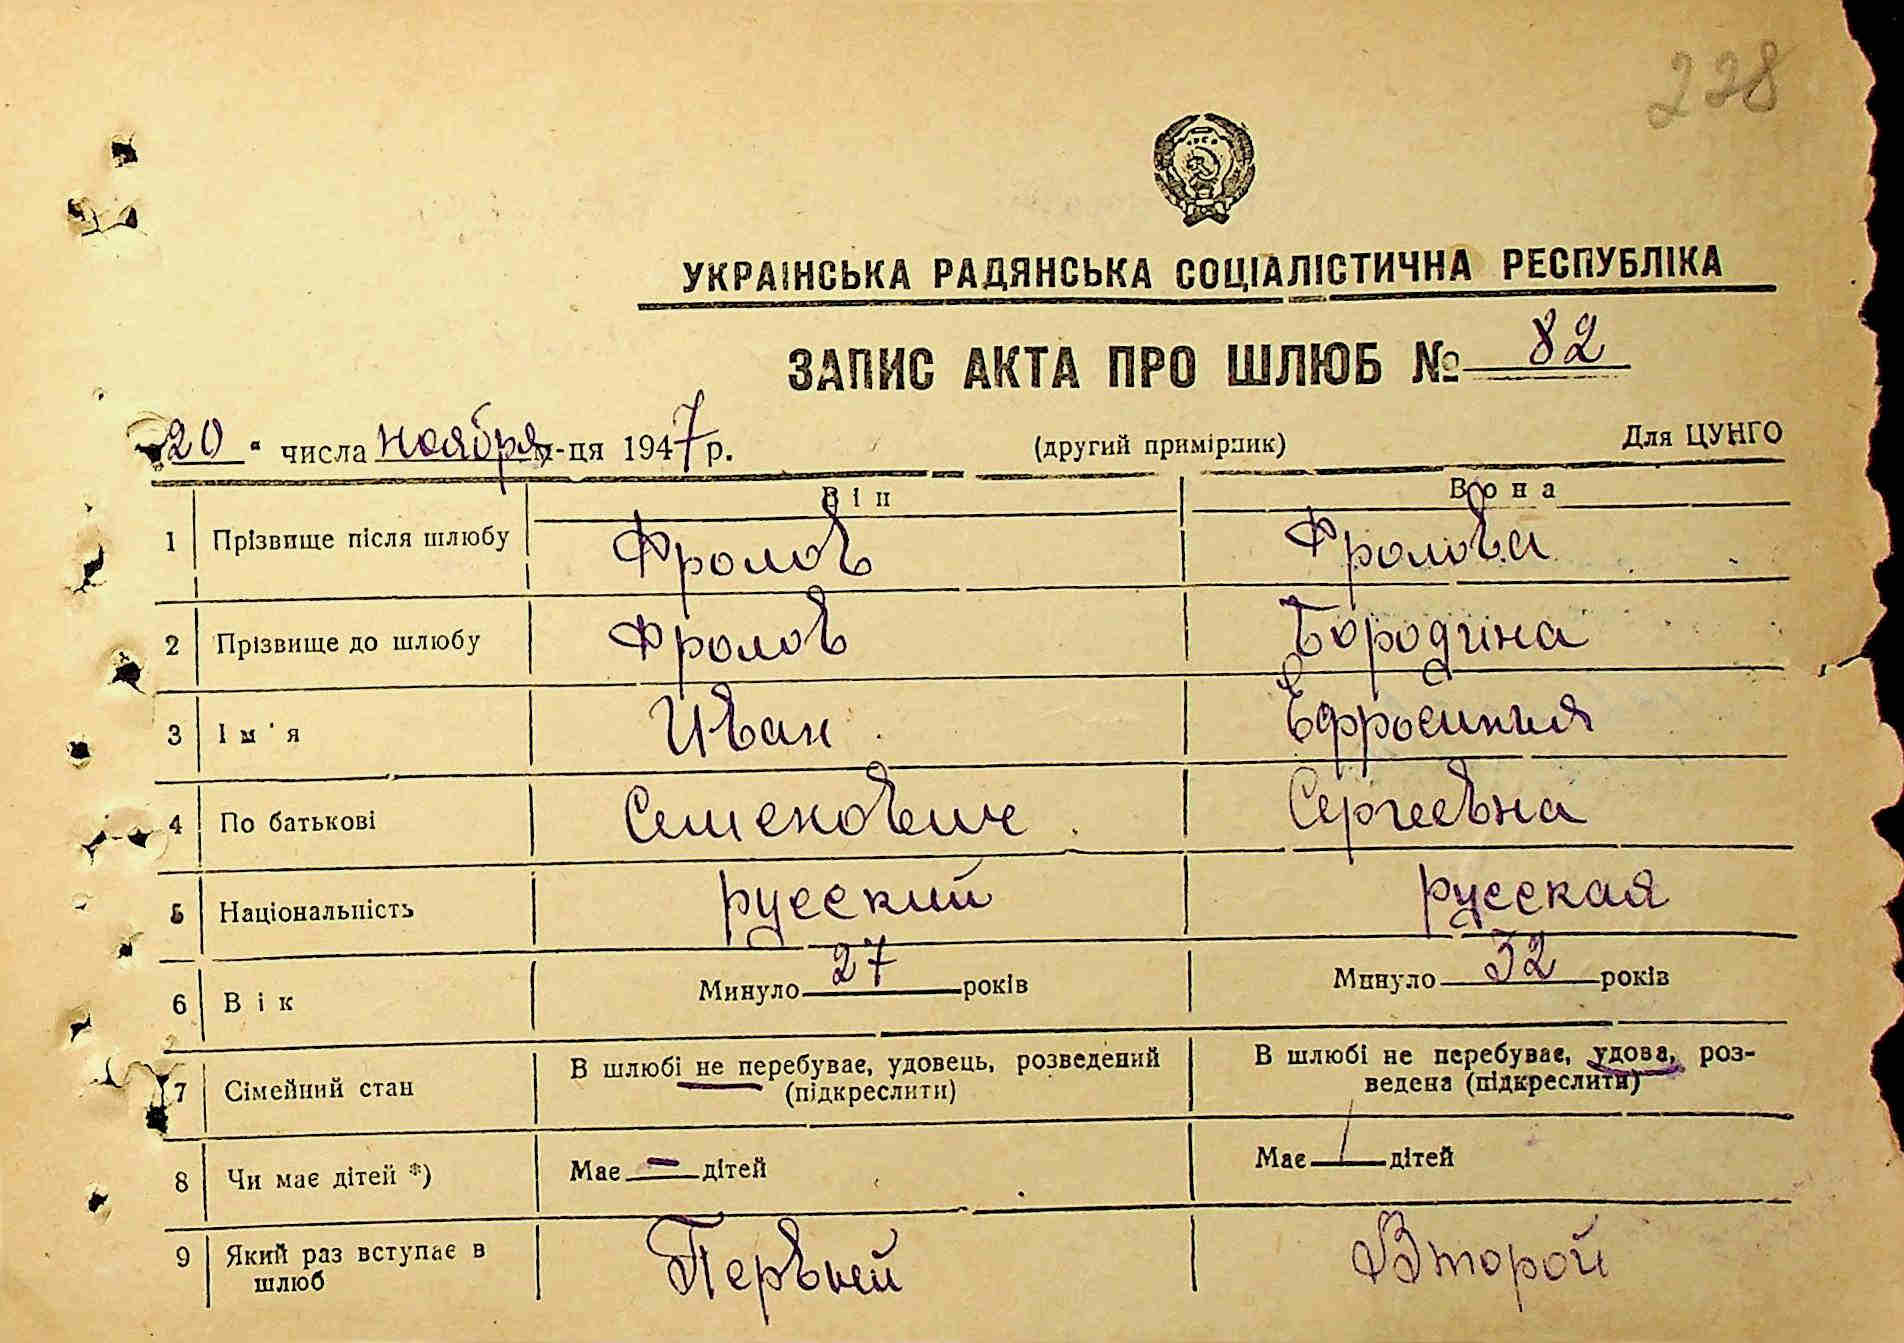 228
УКРАЇНСЬКА РАДЯНСЬКА СОЦІАЛІСТИЧНА РЕСПУБЛІКА
ЗАПИС АКТА ПРО ШЛЮБ № 82
20 " числа ноября м-ця 1947 р. (другий примірник) Для ЦУНГО
Він Вона
1 Прізвище після шлюбу Фролов Фролова
2 Прізвище до шлюбу Фролов Бородина
3 Ім'я Иван Ефросиния
4 По батькові Семенович Сергеевна
5 Національність русский русская
6 Вік Минуло 27 років Минуло 32 років
7 Сімейний стан В шлюбі не перебуває, удовець, розведений (підкреслити) В шлюбі не перебуває, удова, роз-
ведена (підкреслити)
8 Чи має дітей *) Має – дітей Має 1 дітей
9 Який раз вступає в шлюб Первый Второй